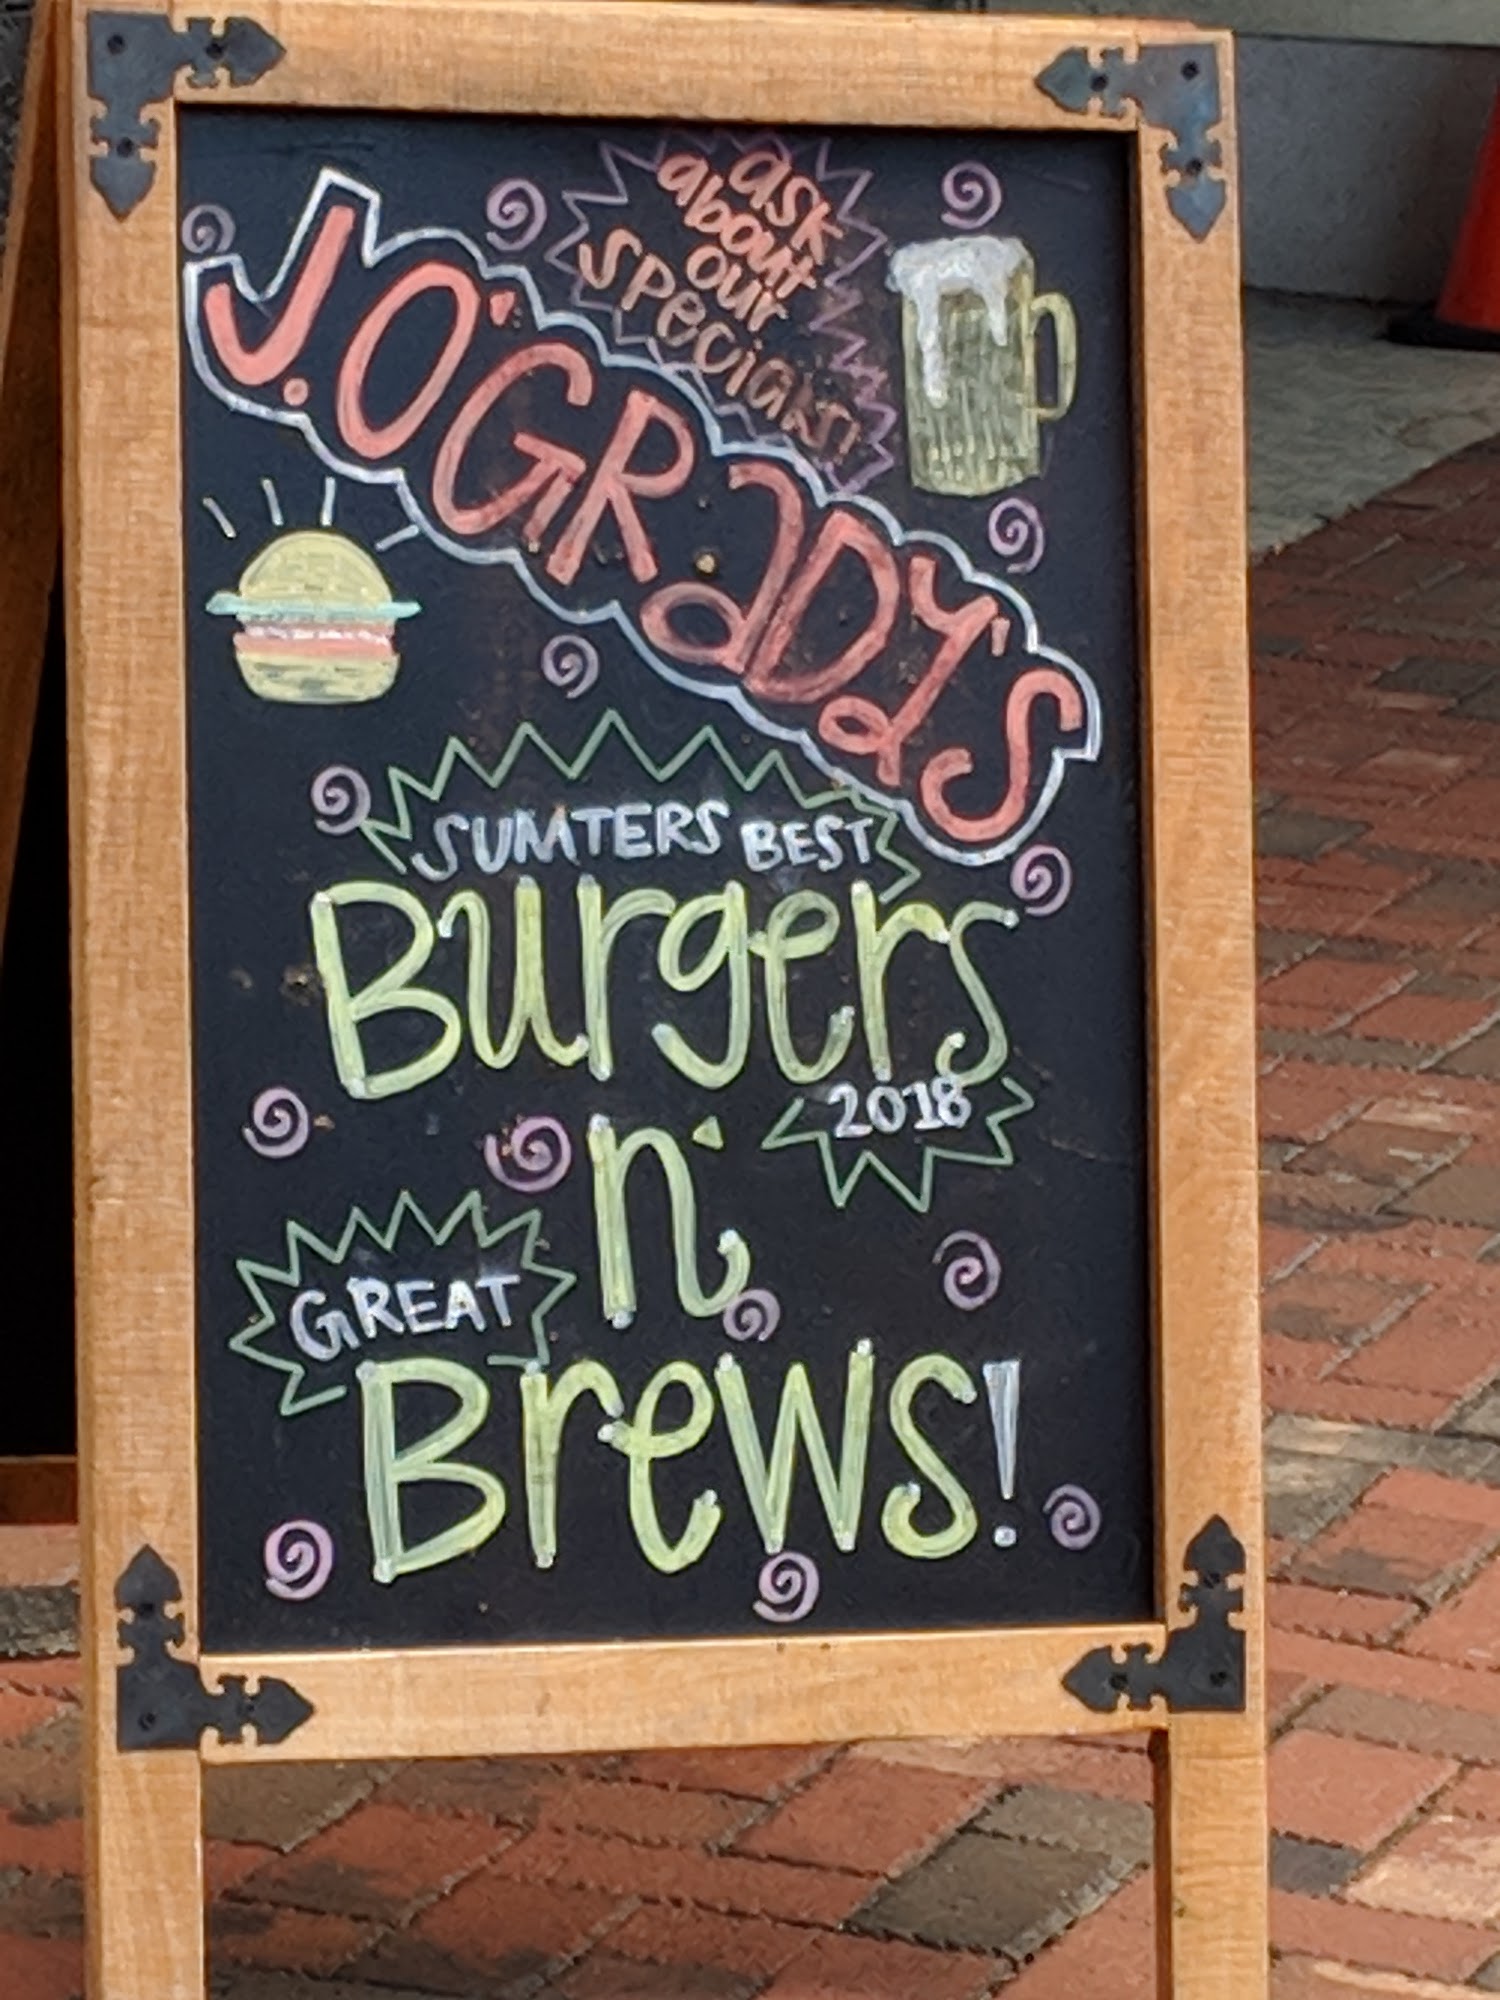 ask
about
our
specials!
J.O'GRADY'S
SUMTERS BEST
Burgers
2018
n'
GREAT
Brews!